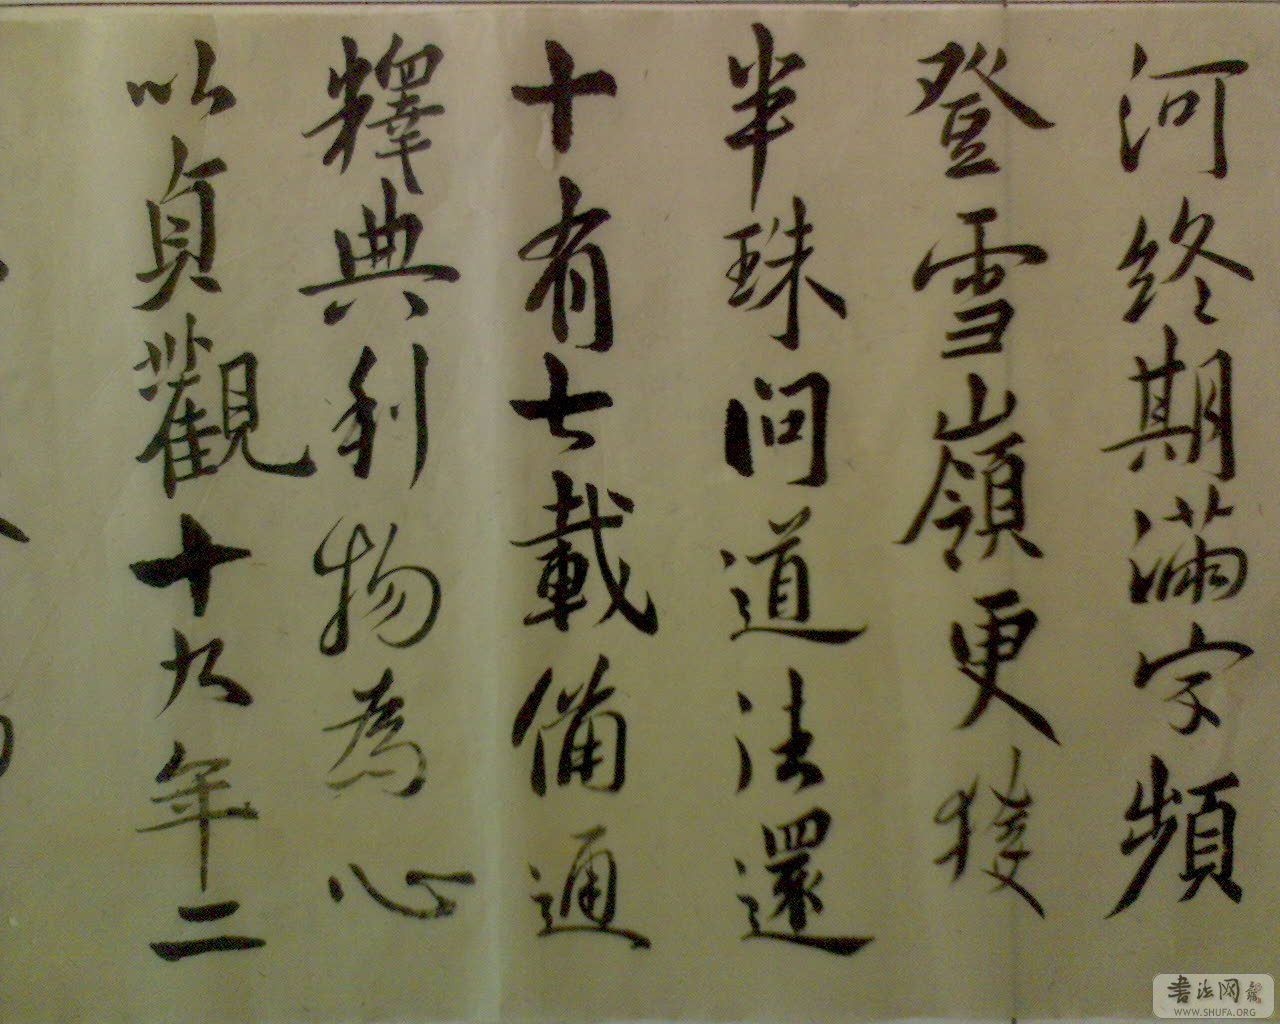 河終期滿字頻
登雪嶺更獲
半珠問道法還
十有七載備通
釋典利物為心
以貞觀十九年二
书法网
WWW.SHUFA.ORG